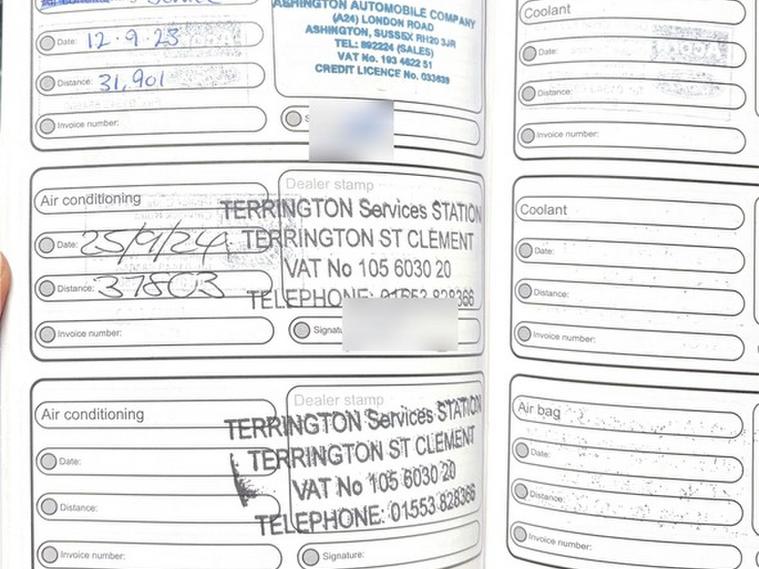 Date: 12.9.23
Distance: 31,901
Invoice number:
ASHINGTON AUTOMOBILE COMPANY
(A24) LONDON ROAD
ASHINGTON, SUSSEX RH20 3JR
TEL: 892224 (SALES)
VAT No. 193 4622 51
CREDIT LICENCE No. 033639
Air conditioning
Date: 25/9/24
Distance: 37803
Invoice number:
Dealer stamp
TERRINGTON Services STATION
TERRINGTON ST CLEMENT
VAT No 105 6030 20
TELEPHONE: 01553 828366
Signatu
Air conditioning
Date:
Distance:
Invoice number:
Dealer stamp
TERRINGTON Services STATION
TERRINGTON ST CLEMENT
VAT No 105 6030 20
TELEPHONE: 01553 828366
Signature:
Coolant
Date:
Distance:
Invoice number:
Coolant
Date:
Distance:
Invoice number:
Air bag
Date:
Distance:
Invoice number: